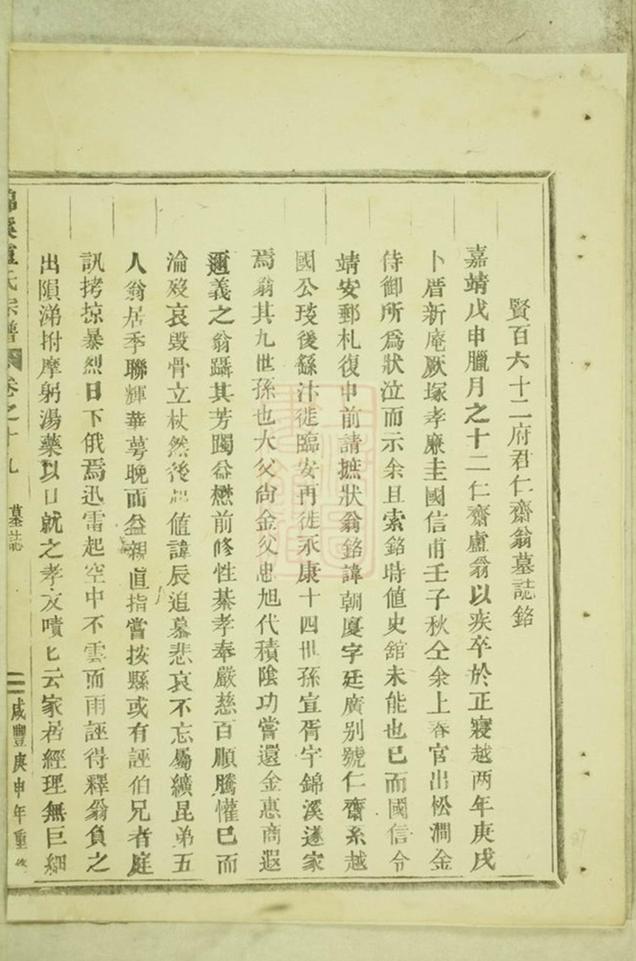 賢百六十二府君仁齋翁墓誌銘
嘉靖戊申臘月之十二仁齋盧翁以疾卒於正寢越两年庚戌
卜厝新庵厥塚孝廉圭國信甫壬子秋仝余上春官出松澗金
侍御所爲狀泣而示余且索銘時値史舘未能也已而國信令
靖安郵札復申前請摭狀翁銘諱朝廈字廷廣别號仁齋系越
國公琰後繇汴徙臨安再徙永康十四世孫宣胥宇錦溪遂家
焉翁其九世孫也大父尙金父思旭代積陰功嘗還金惠商遐
邇義之翁躡其芳躅益懋前修性綦孝奉嚴慈百順騰懽已而
淪歿哀毀骨立杖然後起値諱辰追慕悲哀不忘屬纊昆弟五
人翁居季聯輝華萼晚而益親直指嘗按縣或有誣伯兄者庭
訊拷掠暴烈日下俄焉迅雷起空中不雲而雨誣得釋翁負之
出隕涕拊摩躬湯藥以口就之孝友嘖匕云家居經理無巨細
錦溪盧氏宗譜 卷之十九 墓誌 咸豐庚申年重修